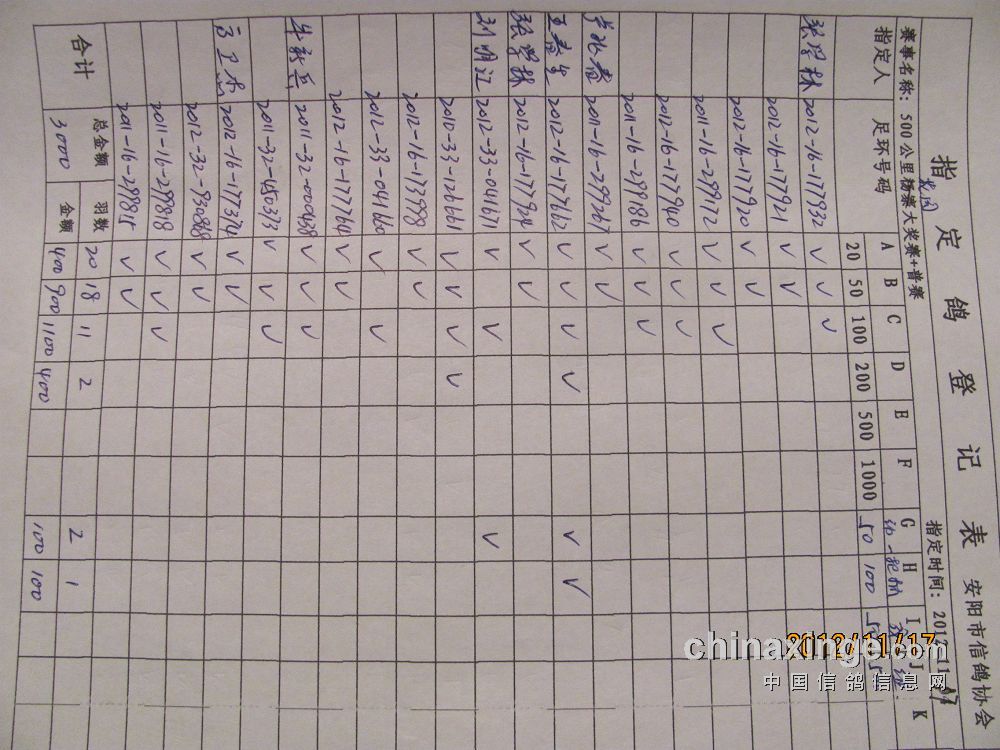 指定鸽登记表 安阳市信鸽协会
龙园
赛事名称: 500公里杨赛大奖赛+普赛 指定时间: 2012.11.17
指定人 足环号码 A B C D E F G H I J K
20 50 100 200 500 1000 50 100
张学林 2012-16-177932 V V V
2012-16-177921 V V
2012-16-177920 V V
2011-16-297172 V V V
2012-16-177940 V V V
2011-16-297186 V V V
2011-16-297267 V V
王春生 2012-16-177662 V V V V V V
张学林 2012-16-177924 V V
刘明江 2012-33-041671 V V V
2010-33-126661 V V V V
2012-16-173998 V V
2012-33-041660 V V
2012-16-177764 V V
牛新兵 2011-32-000488 V V V
2011-32-450373 V V V
2012-16-177374 V V
2012-32-930868 V V
2011-16-297818 V V V
2011-16-297815 V V
合计 总金额 羽数 20 18 11 2 2 1
3000 金额 400 900 1100 400 100 100
2012/11/17
chinaxinge.com
中国信鸽信息网